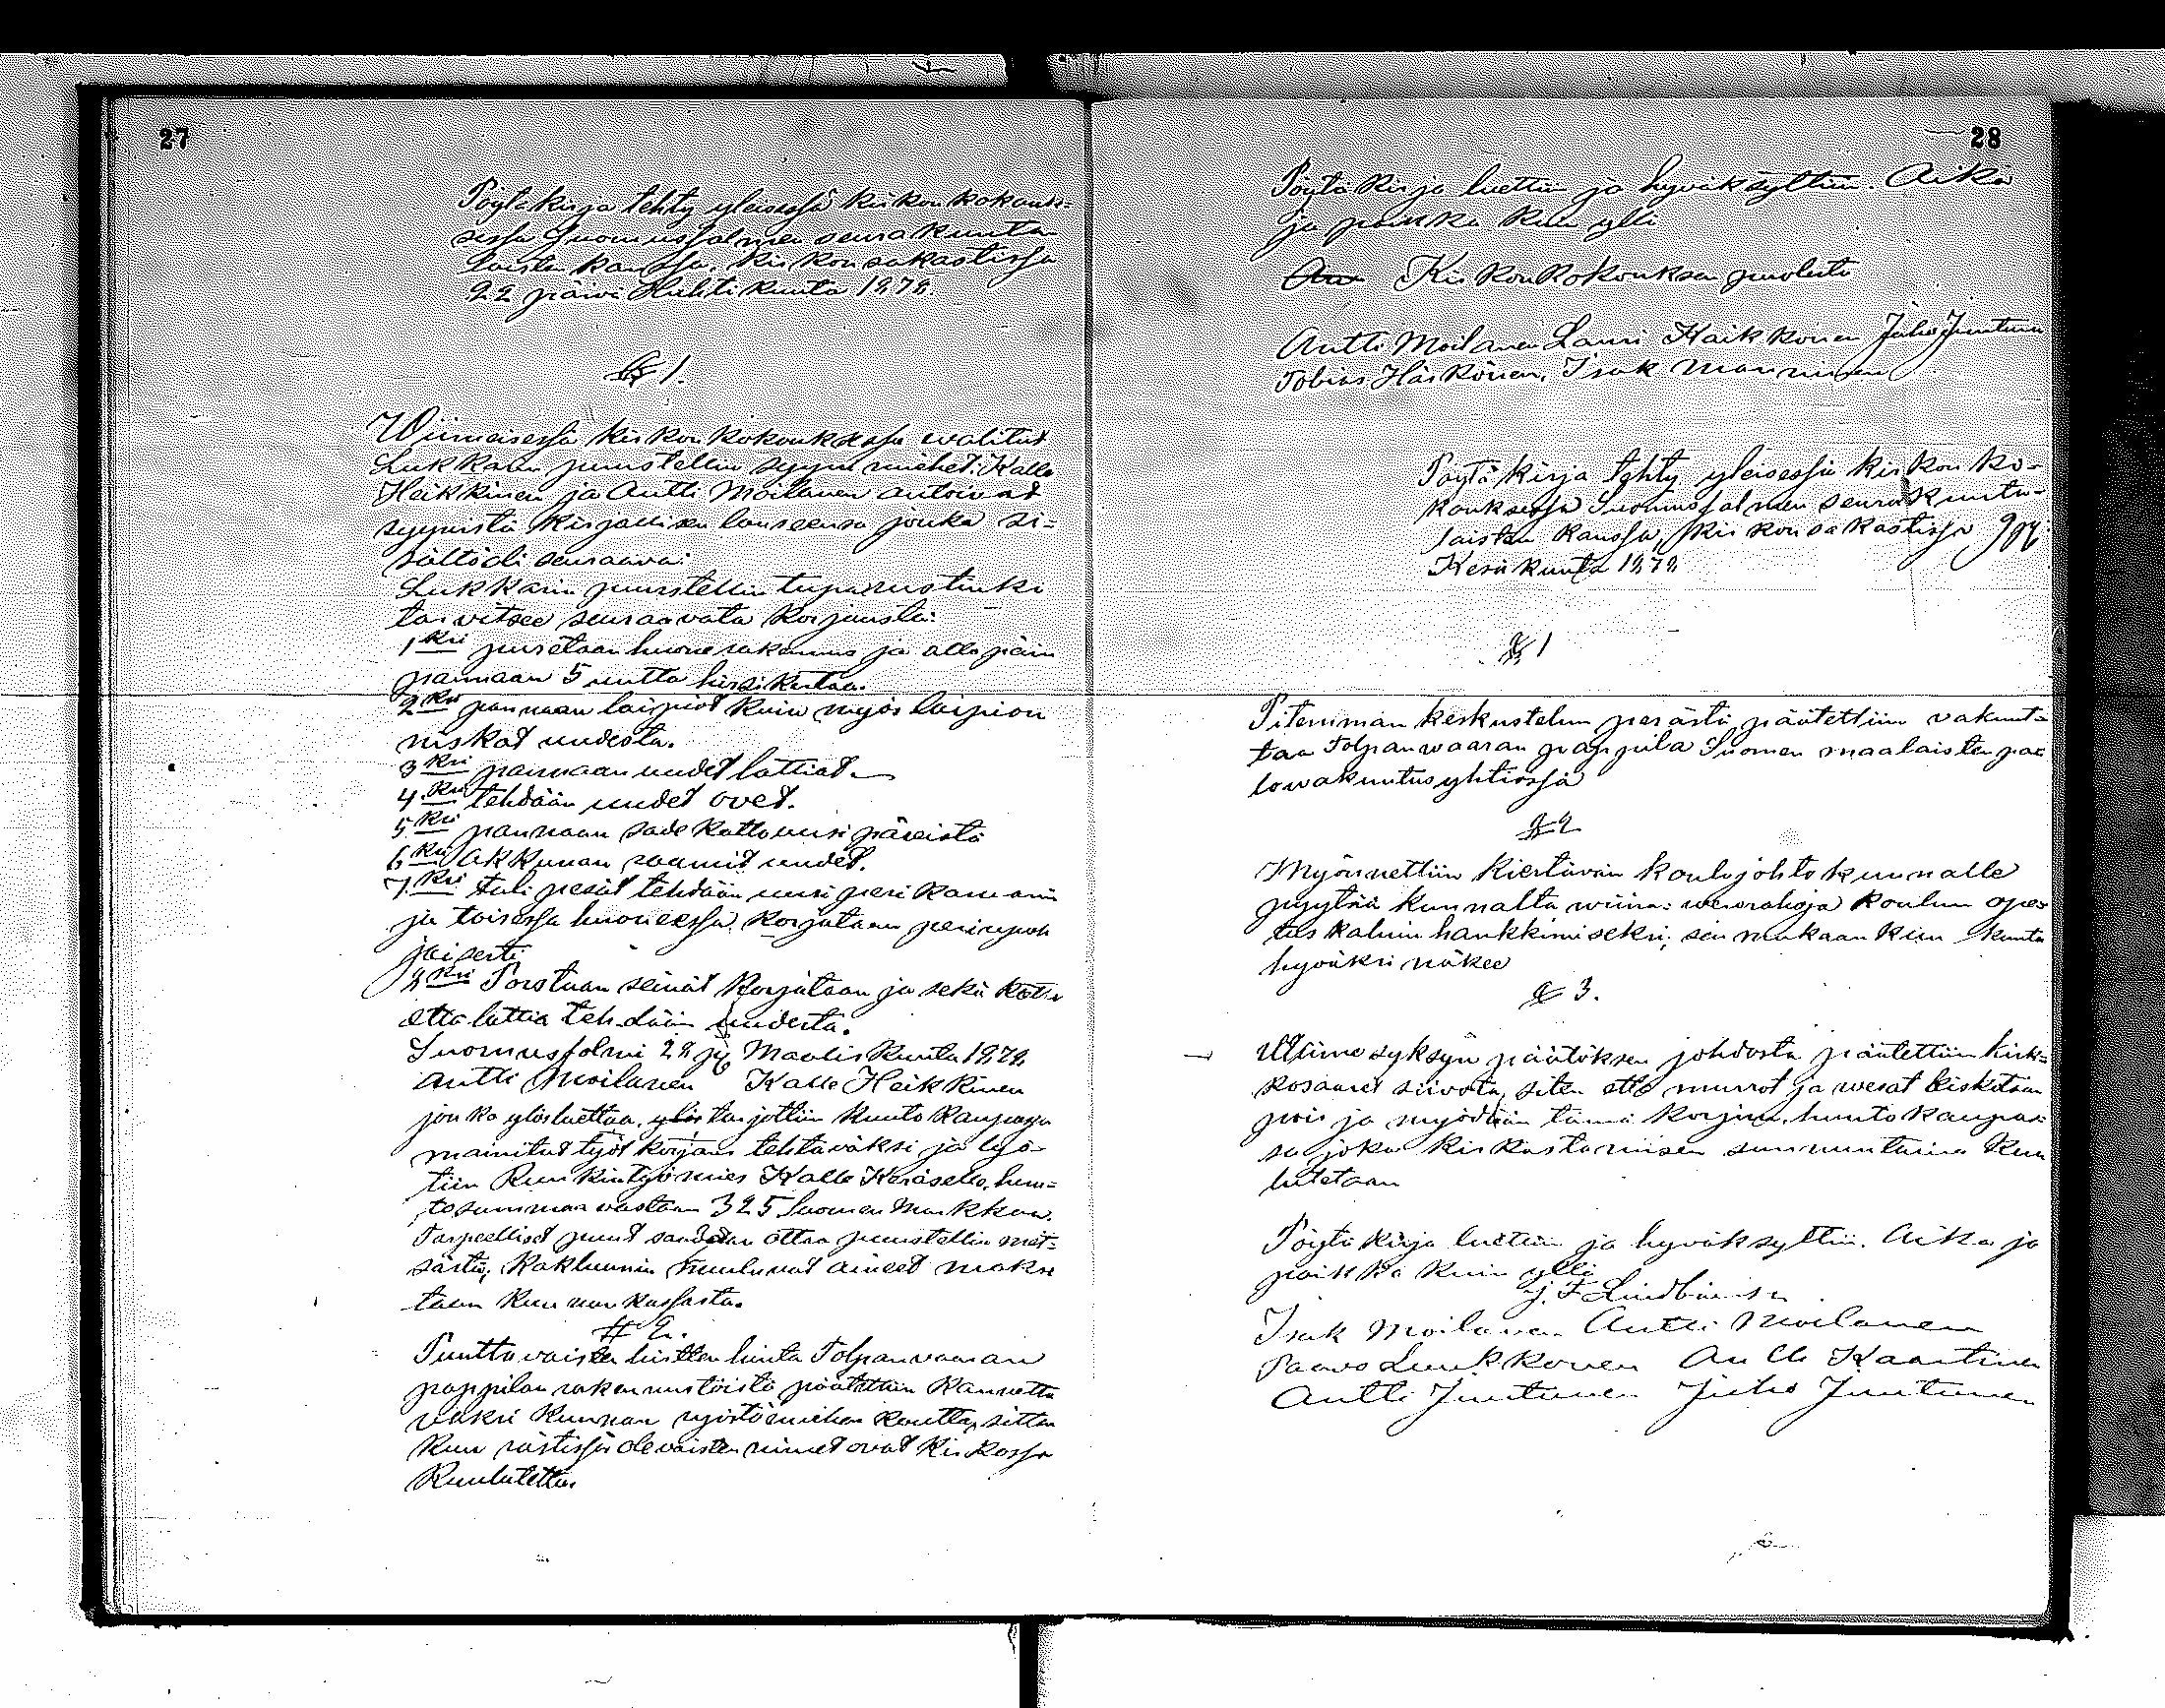 27
Pöytäkirja tehty yleisessä kirkonkokouk=
sessa Suomussalmen seurakunta
laisten kanssa, kirkon sakastissa
22 päivä Huhti kuuta 1878.
§ 1.
Wiimeisessä kirkonkokouksessa walitut
Lukkarin puustellin syyni miehet: Kalle
Heikkinen ja Antti Moilanen antoivat
syynistä kirjallisen lauseensa jonka si=
sältö oli seuraava:
Lukkarin puustellin tuparustinki
tarvitsee seuraavata korjausta:
1ksi puretaan huone rakennus ja alla päin
pannaan 5 uutta hirsikertaa.
2ksi pannaan laipiot kuin myös laipion
niskat uudesta.
3ksi pannaan uudet lattiat.
4ksi tehdään uudet ovet.
5ksi pannaan sade katto uusi päreistä
6ksi Akkunan raamit uudet.
7ksi tuli pesät tehdään uusi peri kamariin
ja toisessa huoneessa korjataan perinpoh
jaisesti
8ksi Porstuan seinät korjataan ja sekä katto
että lattia tehdään uudesta.
Suomussalmi 28 p: Maaliskuuta 1878
Antti Moilanen Kalle Heikkinen
jonka ylösluettua, ylös tarjottiin huuto kaupassa
mainitut työt korjaus tehtäväksi ja lyö=
tiin Ruukintyömies Kalle Keräselle, huu=
tosummaa vastaan 325 Suomen Markkaa.
Tarpeelliset puut saadaan ottaa puustellin met=
sästä, Kakluuniin kuuluvat aineet makse
taan kunnan kassasta.
§ 2.
Puuttuvaisten hirtten hinta Tolpanvaaran
pappilan rakennustöistä päätettiin kannetta
vaksi kunnan ryöstömiehen kautta, sitten
kun rästissä olevaisten nimet ovat kirkossa
kuulutettu.
28
Pöytäkirja luettiin ja hyväksyttiin. Aika
ja paikka kuin yllä
Kirkonkokouksen puolesta
Antti Moilanen Lauri Haikkonen Juho Juntunen
Tobias Härkönen, Isak Manninen
Pöytäkirja tehty yleisessä kirkon ko=
kouksessa Suomussalmen seurakunta=
laisten kanssa, kirkon sakastissa 9 p:
Kesäkuuta 1878
§ 1
Pitemmän keskustelun perästä päätettiin vakuut=
taa Tolpanwaaran pappila Suomen maalaisten pa=
lowakuutusyhtiössä
§ 2
Myönnettiin kiertävän koulujohtokunnalle
pyytää kunnalta wiina: werorahoja koulun ope=
tus kaluin hankkimiseksi, sen mukaan kun kunta
hyväksi näkee
§ 3.
Wiime syksyn päätöksen johdosta päätettiin kirk=
kosaaret siivota, siten että murrot ja wesat kiskotaan
pois ja myödään tämä korjuu huuto kaupas=
sa joka kirkastamisen sunnuntaina kuu
lutetaan
Pöytäkirja luettiin ja hyväksyttiin. Aika ja
paikka kuin yllä
J. F.
Isak Moilanen Antti Moilanen
Paavo Luukkonen Antti Kaartinen
Antti Juntunen Juho Juntunen